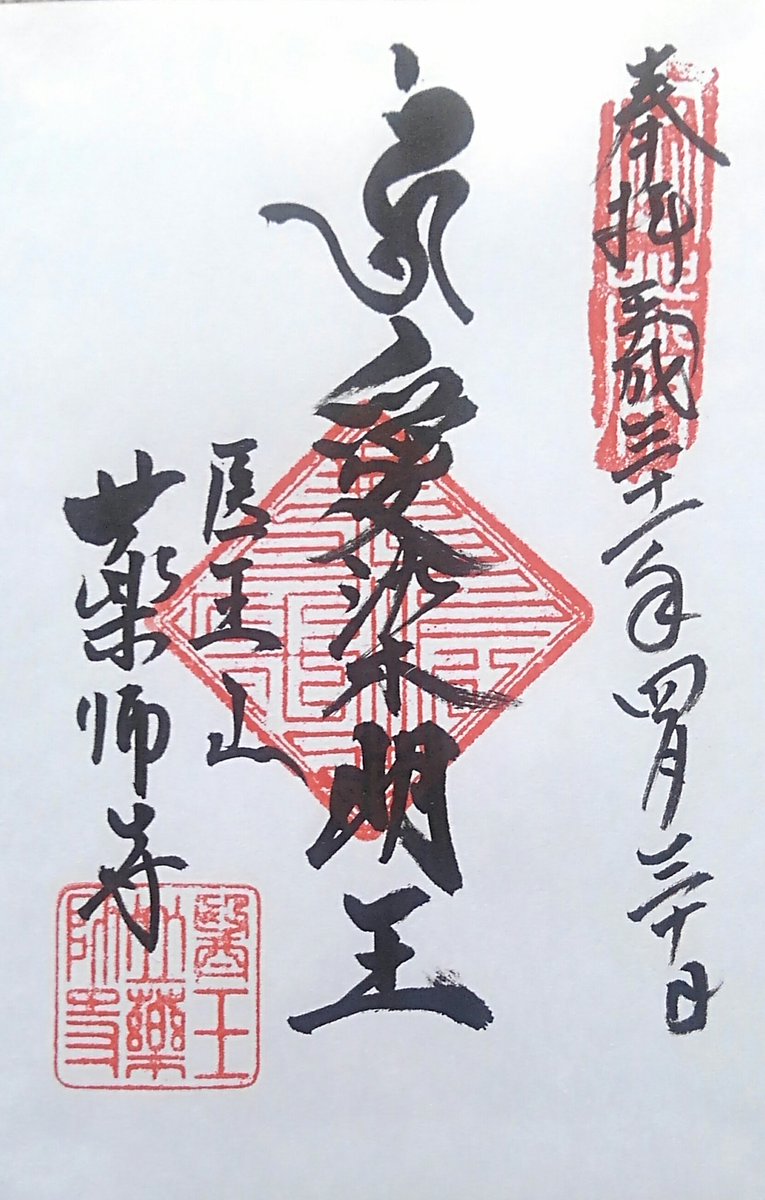 奉拝 平成三十一年四月三十日
愛染明王
医王山
薬師寺
醫王山藥師寺